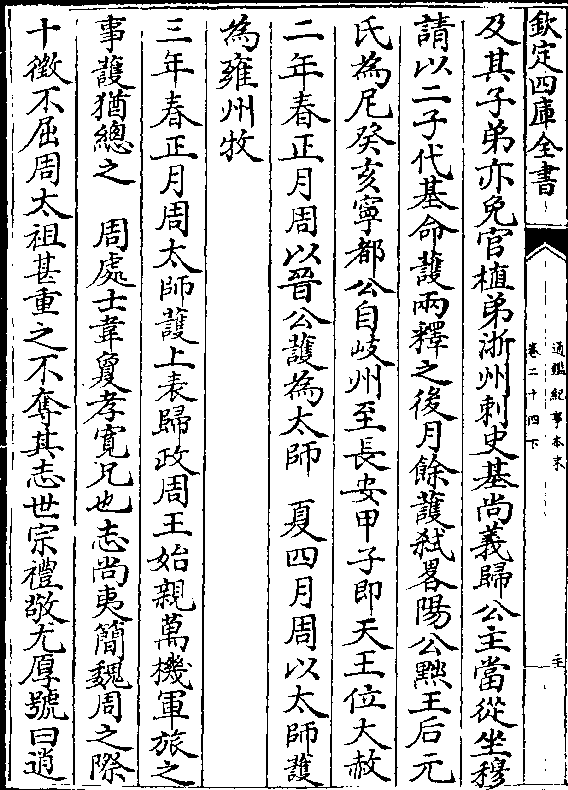 欽定四庫全書
通鑑紀事本末
卷二十四下
及其子弟亦免官植弟淅州刺史基尚義歸公主當從坐穆
請以二子代基命護兩釋之後月餘護弒畧陽公黜王后元
氏為尼癸亥寧都公自岐州至長安甲子即天王位大赦
二年春正月周以晉公護為太師 夏四月周以太師護
為雍州牧
三年春正月周太師護上表歸政周王始親萬機軍旅之
事護猶總之 周處士韋敻孝寬兄也志尚夷簡魏周之際
十徵不屈周太祖甚重之不奪其志世宗禮敬尤厚號曰逍